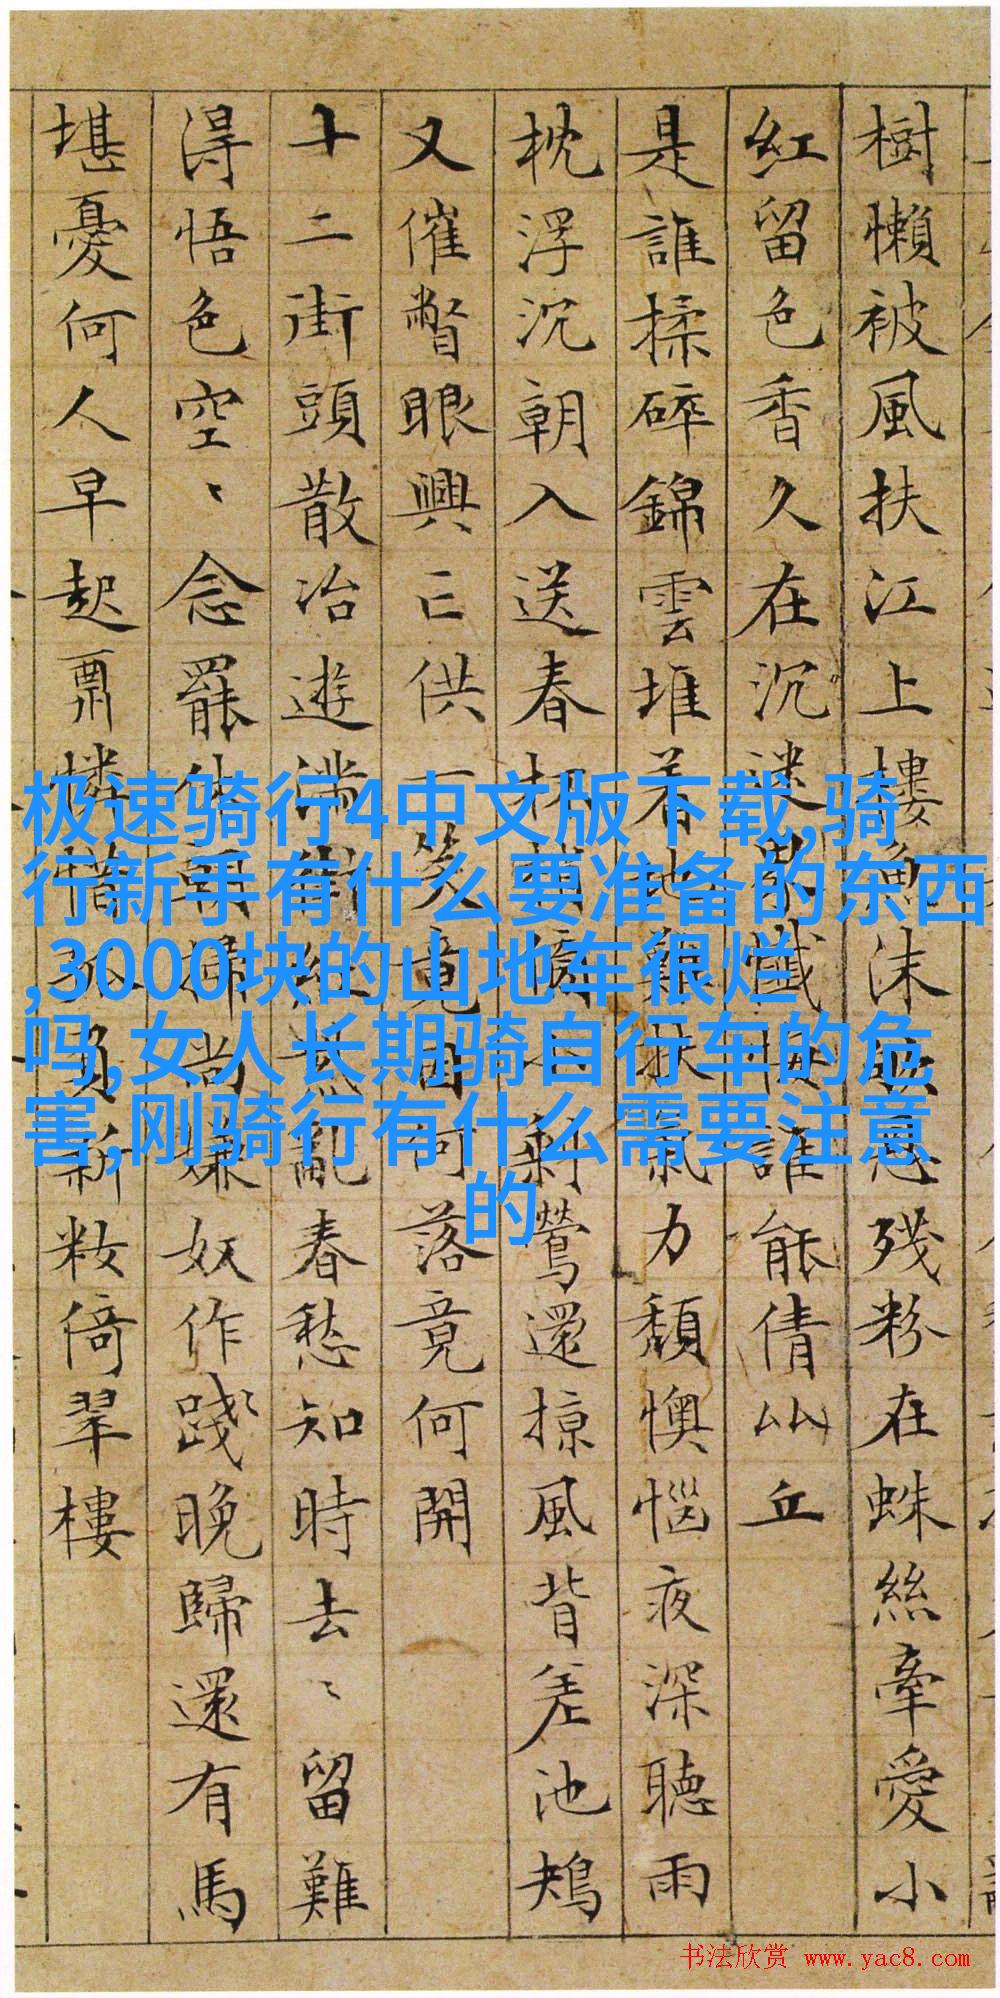 樹懶被風扶江上樓
沫
殘粉在蛛絲牽愛小
紅留色香久在沉
懺
誰能倩
丘
是誰揉碎錦雲堆着地難扶氣力頹懊惱夜深聽雨
枕浮沉朝入送春
鶯還掠風背差池鳩
又催瞥眼興亡供一笑竟
何落竟何開
十二街頭散冶遊滿街
亂春愁知時去〻留難
得悟色空〻念罷
歸尚嫌奴作踐晚歸還有馬
堪憂何人早起肅憐惜
負新妝倚翠樓
极速骑行4中文版下载,骑
行新手有什么要准备的东西
,3000块的山地车很烂
吗,女人长期骑自行车的危
害,刚骑行有什么需要注意
的
书法欣赏 www.yac8.com